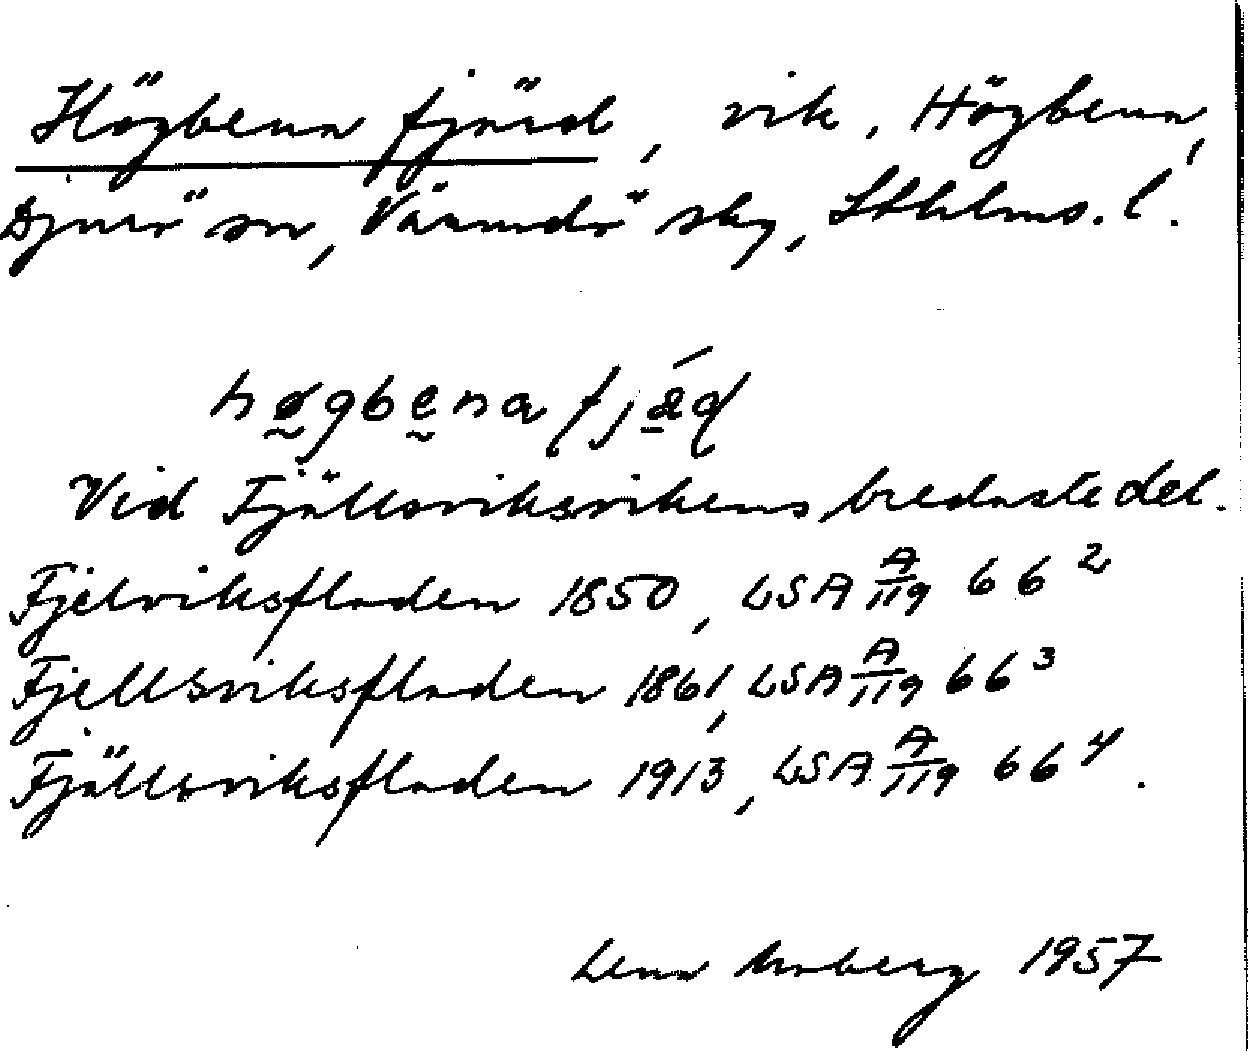 Högbena fjärd, vik, Högbena,
Djurö sn, Värmdö skg, Sthlms. l.
høgbena fjǽ̠ḍ
Vid Fjällsviksvikens bredaste del.
Fjelviksfladen 1850, LSA A/119 66²
Fjellsviksfladen 1861, LSA A/119 66³
Fjällsviksfladen 1913, LSA A/119 66⁴.
Lena Moberg 1957